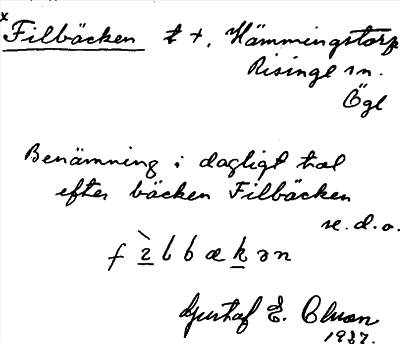 x Filbäcken t +, Hämmingstorp
Risinge sn.
Ögl
Benämning i dagligt tal
efter bäcken Filbäcken
se. d. o.
Gustaf E.
1937.